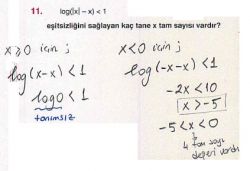 11. log(|x| – x) < 1
eşitsizliğini sağlayan kaç tane x tam sayısı vardır?
x ≥ 0 için ;
log(x-x) < 1
log0 < 1
tanımsız
x < 0 için ;
log(-x-x) < 1
-2x < 10
x > -5
-5 < x < 0
4 tam sayı
değeri vardır